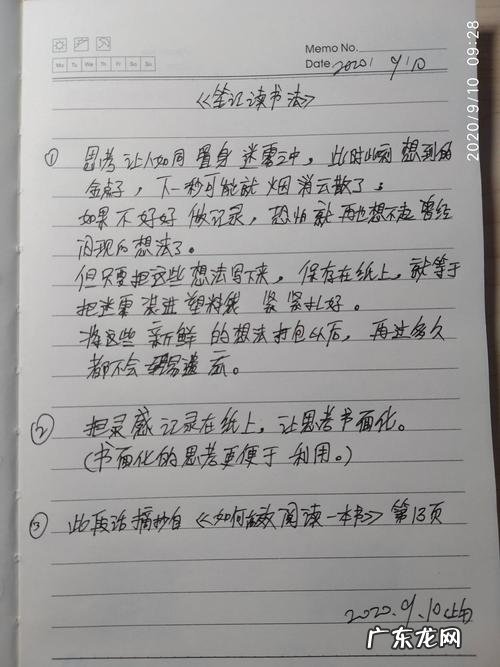 Memo No.
Mo Tu We Th Fr Sa Su
Date 2020/9/10
《笔记读书法》
① 思考让人如同置身迷雾之中，此时此刻想到的
金点子，下一秒可能就烟消云散了；
如果不好好做记录，恐怕就再也想不起曾经
闪现的想法了。
但只要把这些想法写下来，保存在纸上，就等于
把迷雾装进塑料袋紧紧扎好。
将这些新鲜的想法打包以后，再过多久
都不会轻易遗忘。
② 把灵感记录在纸上，让思考书面化。
(书面化的思考更便于利用。)
③ 此段话摘抄自《如何有效阅读一本书》第13页
2020.9.10
2020/9/10 09:28
广东龙网